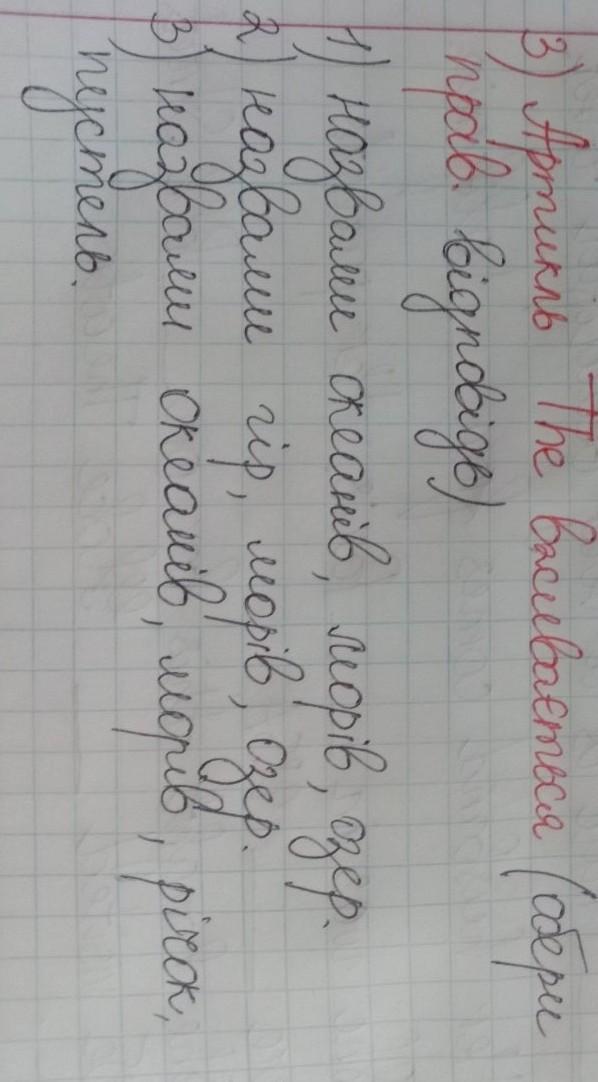 3) Артикль The вживається (обери
прав. відповідь)
1) назвами океанів, морів, озер.
2) назвами гір, морів, озер.
3) назвами океанів, морів, річок,
пустель.